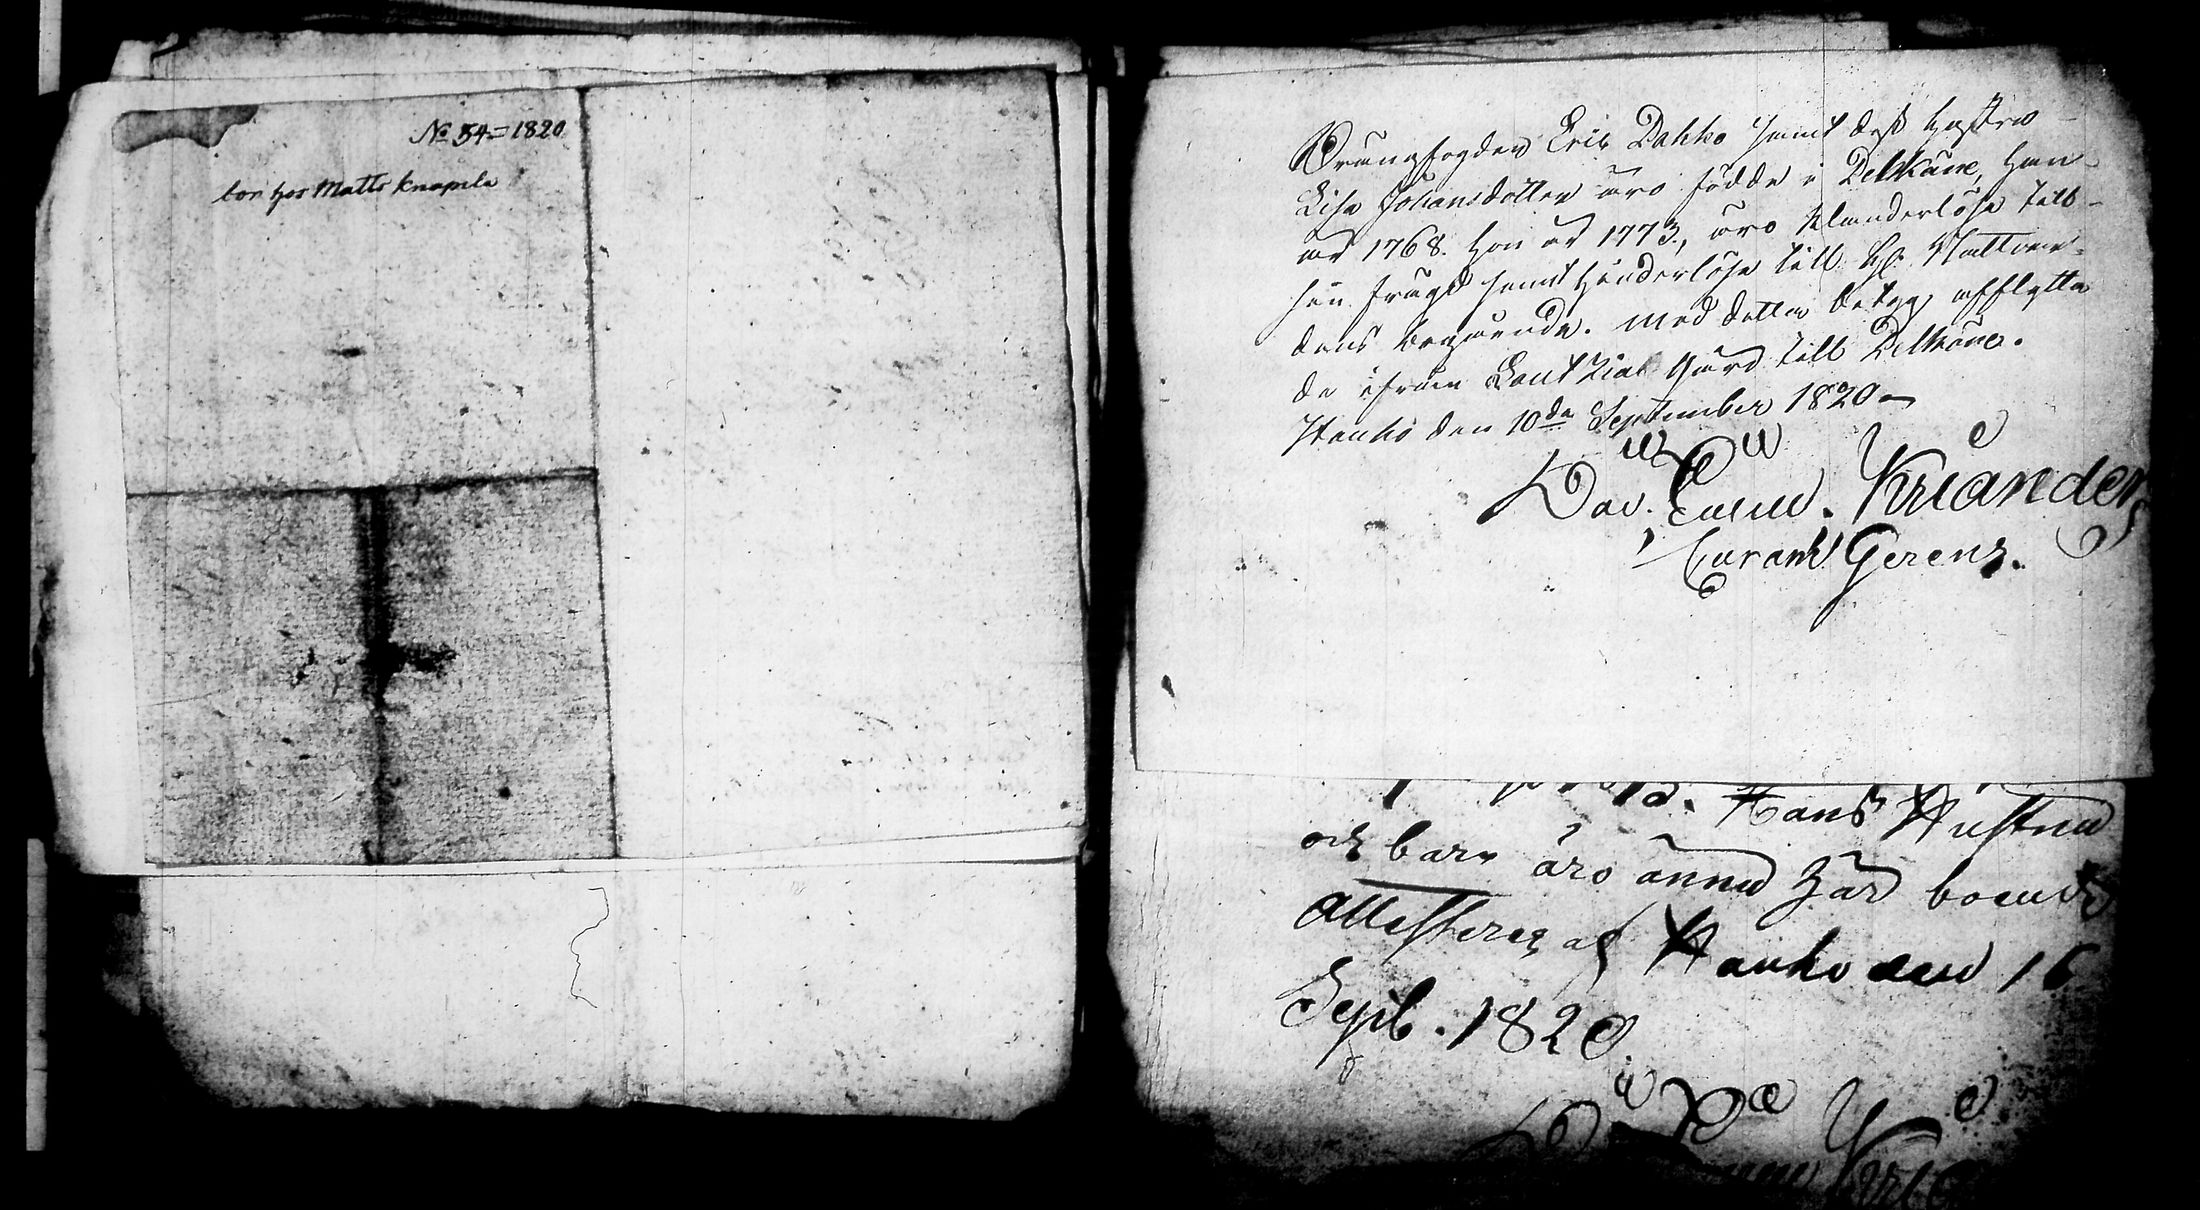 No 54 = 1820
bor hos Matts Knapila
Drängfogden Eric Dahko samt dess Hustru
Lisa Johansdotter äro födde i Pelkäne, han
år 1768. hon år 1773, äro klanderlöse till
sin frägd samt hinderlöse till H. Nattvar-
dens begående. med detta betyg afflytta
de ifrån Gård till Pelkäne.
Hauho den 10de September 1820
Dav. Eman. Kriander
Curam Gerens.
Hans Hustru
och barn äro ännu här boende
Attesteras af Hauho den 16
Sept. 1820